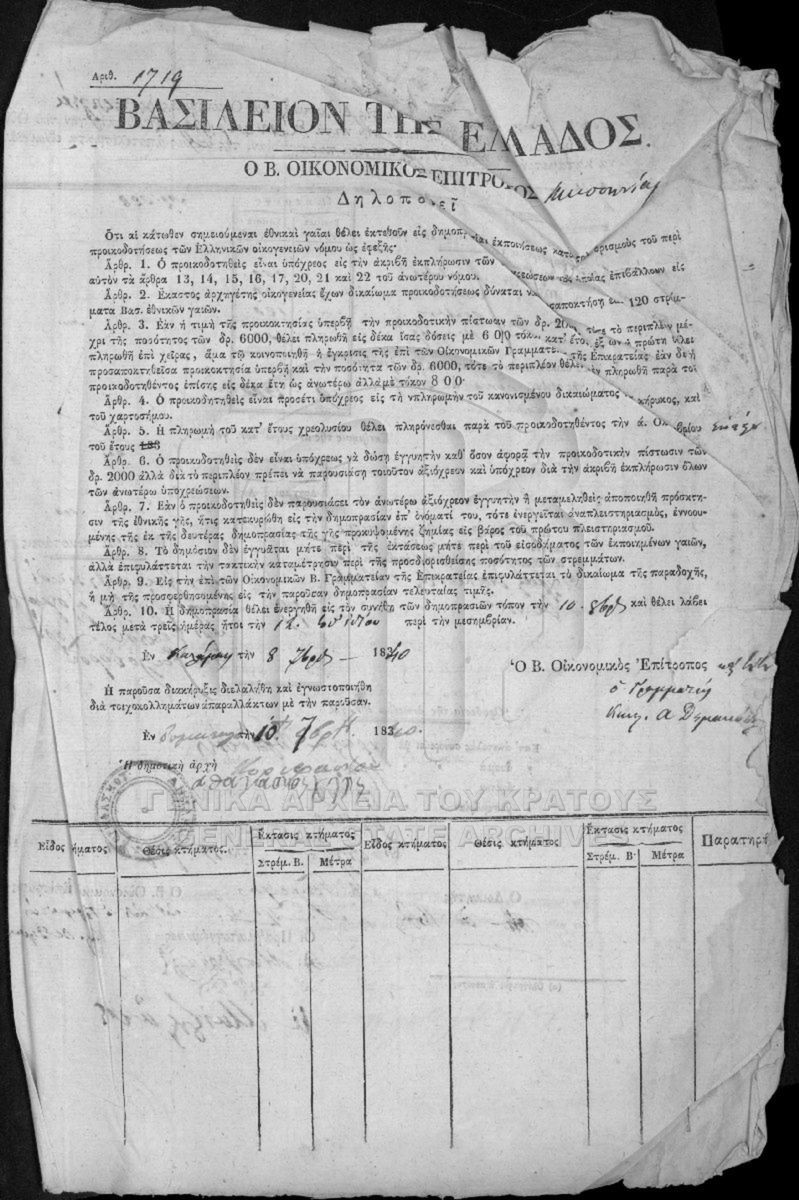 Αριθ. 1719
ΒΑΣΙΛΕΙΟΝ ΤΗΣ ΕΛΛΑΔΟΣ.
Ο Β. ΟΙΚΟΝΟΜΙΚΟΣ ΕΠΙΤΡΟΠΟΣ Μεσσηνίας
Δηλοποιεῖ
Ότι αἱ κάτωθεν σημειούμεναι ἐθνικαὶ γαῖαι θέλει ἐκτεθοῦν εἰς δημοπρ ἐκποιήσεως κατὰ ὁρισμοὺς τοῦ περὶ
προικοδοτήσεως τῶν Ἑλληνικῶν οἰκογενειῶν νόμου ὡς ἑφεξῆς·
Ἀρθρ. 1. Ὁ προικοδοτηθεὶς εἶναι ὑπόχρεος εἰς τὴν ἀκριβῆ ἐκπλήρωσιν τῶν ὁποίας ἐπιβάλλουν εἰς
αὐτὸν τὰ ἄρθρα 13, 14, 15, 16, 17, 20, 21 καὶ 22 τοῦ ἀνωτέρου νόμου.
Ἀρθρ. 2. Ἕκαστος ἀρχηγέτης οἰκογενείας ἔχων δικαίωμα προικοδοτήσεως δύναται νὰ 120 στρέμ-
ματα Βασ. ἐθνικῶν γαιῶν.
Ἀρθρ. 3. Ἐὰν ἡ τιμὴ τῆς προικοκτησίας ὑπερβῇ τὴν προικοδοτικὴν πίστωσιν τῶν δρ. 2000 τότε τὸ περιπλέον μέ-
χρι τῆς ποσότητος τῶν δρ. 6000, θέλει πληρωθῇ εἰς δέκα ἴσας δόσεις μὲ 6 0|0 τόκον κατ' ἔτος, ἐξ ὧν ἡ πρώτη θέλει
πληρωθῆ ἐπὶ χεῖρας, ἅμα τῷ κοινοποιηθῇ ἡ ἔγκρισις τῆς ἐπὶ τῶν Οἰκονομικῶν Γραμματε τῆς Ἐπικρατείας ἐὰν δὲ ἡ
προσαποκτηθεῖσα προικοκτησία ὑπερβῇ καὶ τὴν ποσότητα τῶν δρ. 6000, τότε τὸ περιπλέον θέλει πληρωθῇ παρὰ τοῦ
προικοδοτηθέντος ἐπίσης εἰς δέκα ἔτη ὡς ἀνωτέρω ἀλλὰ μὲ τόκον 8 0 0·
Ἀρθρ. 4. Ὁ προικοδοτηθεὶς εἶναι προσέτι ὑπόχρεος εἰς τὴν πληρωμὴν τοῦ κανονισμένου δικαιώματος κήρυκος, καὶ
τοῦ χαρτοσήμου.
Ἀρθρ. 5. Ἡ πληρωμὴ τοῦ κατ' ἔτους χρεολυσίου θέλει πληρόνεσθαι παρὰ τοῦ προικοδοτηθέντος τὴν ά. Ὀκ βρίου
τοῦ ἔτους 183
Ἀρθρ. 6. Ὁ προικοδοτηθεὶς δὲν εἶναι ὑπόχρεως νὰ δώσῃ ἐγγυητὴν καθ' ὅσον ἀφορᾷ τὴν προικοδοτικὴν πίστωσιν τῶν
δρ. 2000 ἀλλὰ διὰ τὸ περιπλέον πρέπει νὰ παρουσιάσῃ τοιοῦτον ἀξιόχρεον καὶ ὑπόχρεον διὰ τὴν ἀκριβῆ ἐκπλήρωσιν ὅλων
τῶν ἀνωτέρω ὑποχρεώσεων.
Ἀρθρ. 7. Ἐὰν ὁ προικοδοτηθεὶς δὲν παρουσιάσει τὸν ἀνωτέρω ἀξιόχρεον ἐγγυητὴν ἢ μεταμεληθεὶς ἀποποιηθῇ πρόσκτη-
σιν τῆς ἐθνικῆς γῆς, ἥτις κατεκυρώθη εἰς τὴν δημοπρασίαν ἐπ' ὀνόματί του, τότε ἐνεργεῖται ἀναπλειστηριασμὸς, ἐννοου-
μένης τῆς ἐκ τῆς δευτέρας δημοπρασίας τῆς γῆς προκυψομένης ζημίας εἰς βάρος τοῦ πρώτου πλειστηριασμοῦ.
Ἀρθρ. 8. Τὸ δημόσιον δὲν ἐγγυᾶται μήτε περὶ τῆς ἐκτάσεως μήτε περὶ τοῦ εἰσοδήματος τῶν ἐκποιημένων γαιῶν,
ἀλλὰ ἐπιφυλάττεται τὴν τακτικὴν καταμέτρησιν περὶ τῆς προσδιορισθείσης ποσότητος τῶν στρεμμάτων.
Ἀρθρ. 9. Εἰς τὴν ἐπὶ τῶν Οἰκονομικῶν Β. Γραμματείαν τῆς Ἐπικρατείας ἐπιφυλάττεται τὸ δικαίωμα τῆς παραδοχῆς,
ἢ μὴ τῆς προσφερθησομένης εἰς τὴν παροῦσαν δημοπρασίαν τελευταίας τιμῆς.
Ἀρθρ. 10. Ἡ δημοπρασία θέλει ἐνεργηθῆ εἰς τὸν συνήθη τῶν δημοπρασιῶν τόπον τὴν 10 8βρ καὶ θέλει λάβει
τέλος μετὰ τρεῖς ἡμέρας ἤτοι τὴν 12. περὶ τὴν μεσημβρίαν.
Ἐν Καλάμαις τὴν 8 7βρ 1840
Ὁ Β. Οἰκονομικὸς Ἐπίτροπος
ὁ Γραμματεὺς
Ἡ παροῦσα διακήρυξις διελαλήθη καὶ ἐγνωστοποιήθη
διὰ τοιχοκολλημάτων ἀπαραλλάκτων μὲ τὴν παροῦσαν.
Ἐν τὴν 10 7βρ 1840.
Ἡ δημοτικὴ ἀρχὴ
ΓΕΝΙΚΑ ΑΡΧΕΙΑ ΤΟΥ ΚΡΑΤΟΥΣ
GENERAL STATE ARCHIVES
Εἶδος ήματος Θέσις κτήματος. Ἔκτασις κτήματος Εἶδος κτήματος Θέσις κτήματος Ἔκτασις κτήματος Παρατηρή
Στρέμ. Β. Μέτρα Στρέμ. Β Μέτρα